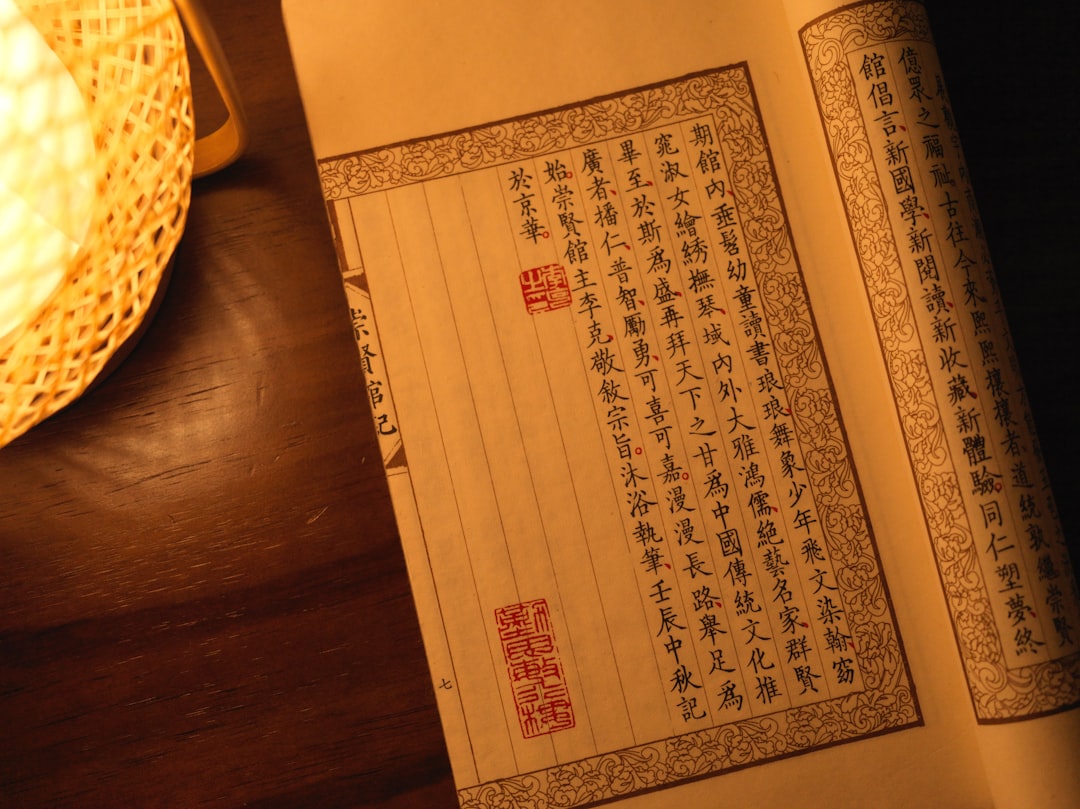 億眾之福祉、古往今來、熙熙攘攘者、道統孰繼、崇賢
館倡言、新國學、新閱讀、新收藏、新體驗。同仁塑夢、終
期館內、垂髫幼童讀書琅琅、舞象少年飛文染翰、窈
窕淑女繪綉撫琴、域內外大雅鴻儒、絕藝名家、群賢
畢至、於斯為盛、再拜天下之甘為中國傳統文化推
廣者、播仁、普智、勵勇、可喜可嘉。漫漫長路、舉足為
始。崇賢館主李克敬敘宗旨。沐浴執筆、壬辰中秋記
於京華。
崇賢館記
七